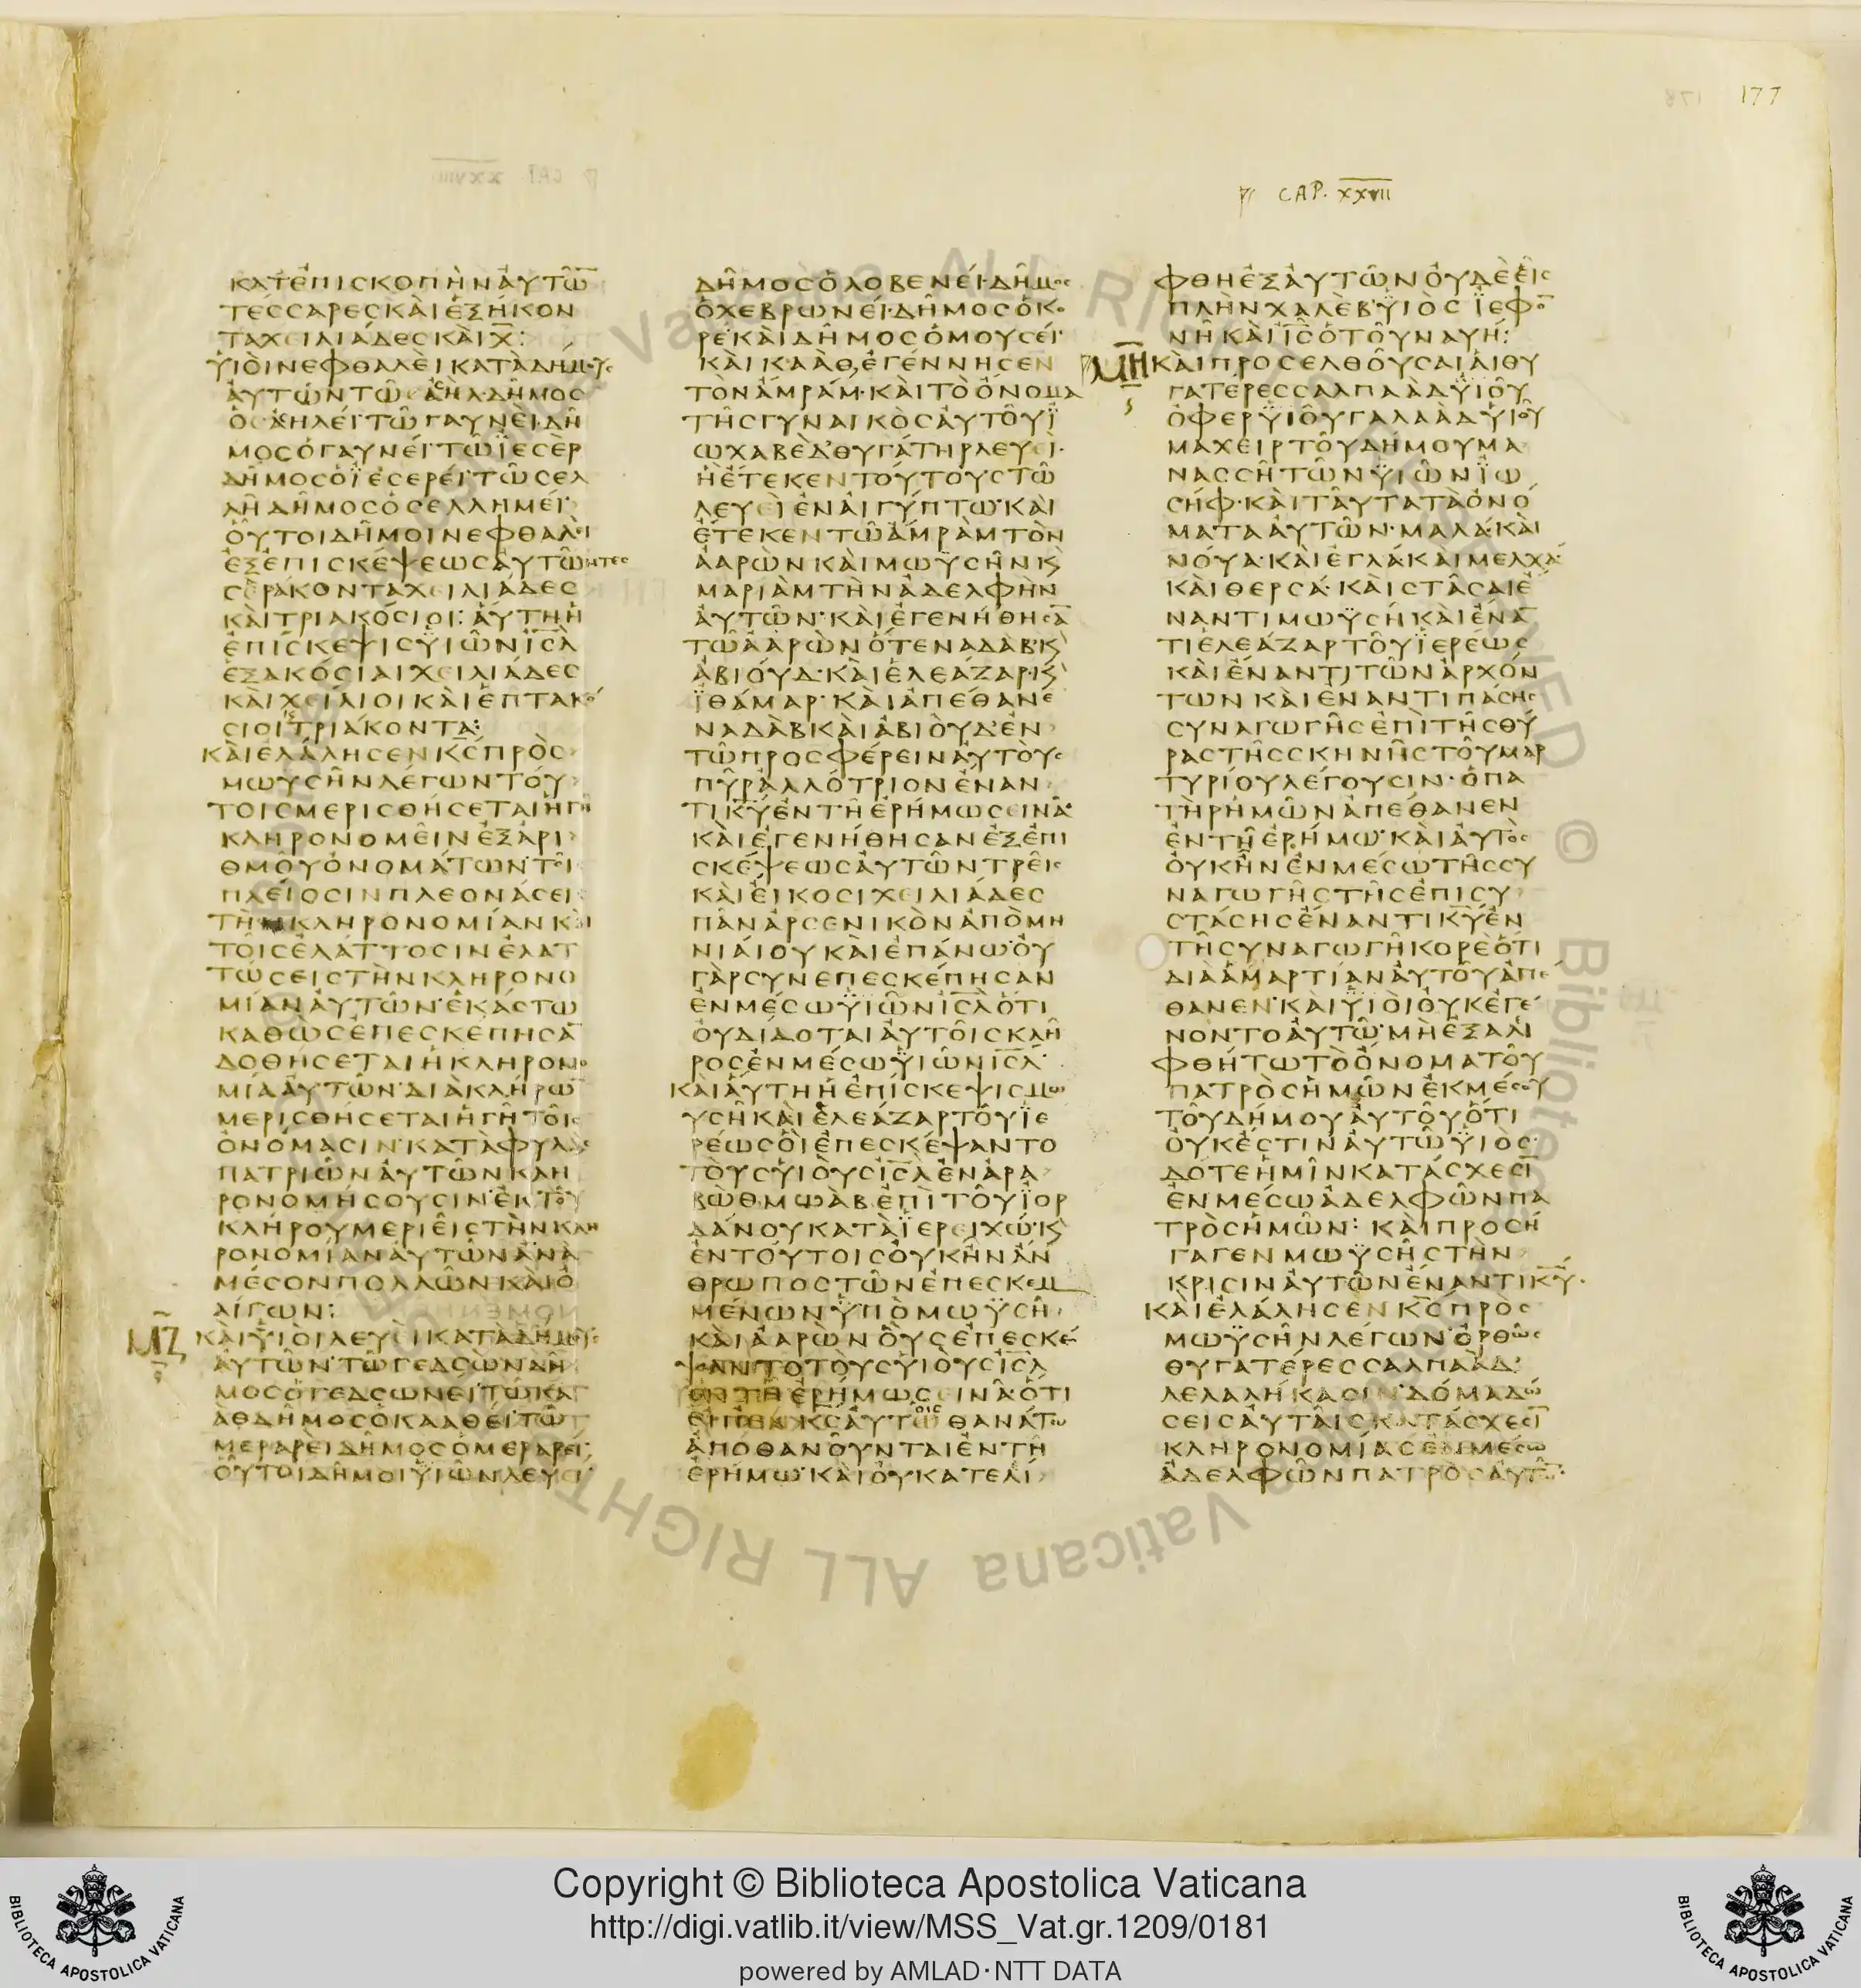 177
CAP. XXVII
ΚΑΤ ἘΠΙΣΚΟΠῊΝ ἈΥΤΩ̅
ΤΈΣΣΑΡΕΣ ΚΑῚ ἙΞΉΚΟΝ
ΤΑ ΧΕΙΛΙΆΔΕΣ ΚΑῚ Χ̅:
ΥἹΟῚ ΝΕΦΘΑΛΕῚ ΚΑΤᾺ ΔΉΜΟΥΣ
ΑΥΤΩΝ ΤΩ ΑΣΙΗΛ ΔΗΜΟΣ
Ο ΑΣΙΗΛΕΙ ΤΩ ΓΑΥΝΕΙ ΔΗ
ΜΟΣ Ο ΓΑΥΝΕΙ ΤΩ ΪΕΣΕΡ
ΔΗΜΟΣ Ο ΪΕΣΕΡΕΙ ΤΩ ΣΕΛ
ΛΗ ΔΗΜΟΣ Ο ΣΕΛΛΗΜΕΙ
ΟΥΤΟΙ ΔΗΜΟΙ ΝΕΦΘΑΛΕΙ
ΕΞ ΕΠΙΣΚΕΨΕΩΣ ΑΥΤΩΝ ΤΕΣ
ΣΕΡΑΚΟΝΤΑ ΧΕΙΛΙΑΔΕΣ
ΚΑΙ ΤΡΙΑΚΟΣΙΟΙ: ΑΥΤΗ Η
ΕΠΙΣΚΕΨΙΣ ΥΙΩΝ ΙΣ̅Λ
ΕΞΑΚΟΣΙΑΙ ΧΕΙΛΙΑΔΕΣ
ΚΑΙ ΧΕΙΛΙΟΙ ΚΑΙ ΕΠΤΑΚΟ
ΣΙΟΙ ΤΡΙΑΚΟΝΤΑ:
ΚΑΙ ΕΛΑΛΗΣΕΝ Κ̅Σ ΠΡΟΣ
ΜΩΥΣΗΝ ΛΕΓΩΝ ΤΟΥ
ΤΟΙΣ ΜΕΡΙΣΘΗΣΕΤΑΙ Η ΓΗ
ΚΛΗΡΟΝΟΜΕΙΝ ΕΞ ΑΡΙ
ΘΜΟΥ ΟΝΟΜΑΤΩΝ ΤΟΙΣ
ΠΛΕΙΟΣΙΝ ΠΛΕΟΝΑΣΕΙΣ
ΤΗΝ ΚΛΗΡΟΝΟΜΙΑΝ ΚΑΙ
ΤΟΙΣ ΕΛΑΤΤΟΣΙΝ ΕΛΑΤ
ΤΩΣΕΙΣ ΤΗΝ ΚΛΗΡΟΝΟ
ΜΙΑΝ ΑΥΤΩΝ ΕΚΑΣΤΩ
ΚΑΘΩΣ ΕΠΕΣΚΕΠΗΣΑ̅
ΔΟΘΗΣΕΤΑΙ Η ΚΛΗΡΟΝΟ
ΜΙΑ ΑΥΤΩΝ ΔΙΑ ΚΛΗΡΩ̅
ΜΕΡΙΣΘΗΣΕΤΑΙ Η ΓΗ ΤΟΙΣ
ΟΝΟΜΑΣΙΝ ΚΑΤΑ ΦΥΛΑΣ
ΠΑΤΡΙΩΝ ΑΥΤΩΝ ΚΛΗ
ΡΟΝΟΜΗΣΟΥΣΙΝ ΕΚ ΤΟΥ
ΚΛΗΡΟΥ ΜΕΡΙΕΙΣ ΤΗΝ ΚΛΗ
ΡΟΝΟΜΙΑΝ ΑΥΤΩΝ ΑΝΑ
ΜΕΣΟΝ ΠΟΛΛΩΝ ΚΑΙ Ο
ΛΙΓΩΝ:
ΜΖ
ΚΑΙ ΥΙΟΙ ΛΕΥΕΙ ΚΑΤΑ ΔΗΜΟΥΣ
ΑΥΤΩΝ ΤΩ ΓΕΔΣΩΝ ΔΗ
ΜΟΣ Ο ΓΕΔΣΩΝΕΙ ΤΩ ΚΑ
ΑΘ ΔΗΜΟΣ Ο ΚΑΑΘΕΙ ΤΩ
ΜΕΡΑΡΕΙ ΔΗΜΟΣ Ο ΜΕΡΑΡΕΙ
ΟΥΤΟΙ ΔΗΜΟΙ ΥΙΩΝ ΛΕΥΕΙ
ΔΗΜΟΣ Ο ΛΟΒΕΝΕΙ ΔΗΜΟΣ
Ο ΧΕΒΡΩΝΕΙ ΔΗΜΟΣ Ο ΚΟ
ΡΕ ΚΑΙ ΔΗΜΟΣ Ο ΜΟΥΣΕΙ
ΚΑΙ ΚΑΑΘ ΕΓΕΝΝΗΣΕΝ
ΤΟΝ ΑΜΡΑΜ ΚΑΙ ΤΟ ΟΝΟΜΑ
ΤΗΣ ΓΥΝΑΙΚΟΣ ΑΥΤΟΥ Ϊ
ΩΧΑΒΕΔ ΘΥΓΑΤΗΡ ΛΕΥΕΙ
Η ΕΤΕΚΕΝ ΤΟΥΤΟΥΣ ΤΩ
ΛΕΥΕΙ ΕΝ ΑΙΓΥΠΤΩ ΚΑΙ
ΕΤΕΚΕΝ ΤΩ ΑΜΡΑΜ ΤΟΝ
ΑΑΡΩΝ ΚΑΙ ΜΩΥΣΗΝ Κϛ
ΜΑΡΙΑΜ ΤΗΝ ΑΔΕΛΦΗΝ
ΑΥΤΩΝ ΚΑΙ ΕΓΕΝΗΘΗΣΑ̅
ΤΩ ΑΑΡΩΝ Ο ΤΕ ΝΑΔΑΒ Κϛ
ΑΒΙΟΥΔ ΚΑΙ ΕΛΕΑΖΑΡ Κϛ
ΪΘΑΜΑΡ ΚΑΙ ΑΠΕΘΑΝΕ
ΝΑΔΑΒ ΚΑΙ ΑΒΙΟΥΔ ΕΝ
ΤΩ ΠΡΟΣΦΕΡΕΙΝ ΑΥΤΟΥΣ
ΠΥΡ ΑΛΛΟΤΡΙΟΝ ΕΝΑΝ
ΤΙ Κ̅Υ ΕΝ ΤΗ ΕΡΗΜΩ ΣΕΙΝΑ
ΚΑΙ ΕΓΕΝΗΘΗΣΑΝ ΕΞ ΕΠΙ
ΣΚΕΨΕΩΣ ΑΥΤΩΝ ΤΡΕΙΣ
ΚΑΙ ΕΙΚΟΣΙ ΧΕΙΛΙΑΔΕΣ
ΠΑΝ ΑΡΣΕΝΙΚΟΝ ΑΠΟ ΜΗ
ΝΙΑΙΟΥ ΚΑΙ ΕΠΑΝΩ ΟΥ
ΓΑΡ ΣΥΝΕΠΕΣΚΕΠΗΣΑΝ
ΕΝ ΜΕΣΩ ΥΙΩΝ ΙΣ̅Λ ΟΤΙ
ΟΥ ΔΙΔΟΤΑΙ ΑΥΤΟΙΣ ΚΛΗ
ΡΟΣ ΕΝ ΜΕΣΩ ΥΙΩΝ ΙΣ̅Λ
ΚΑΙ ΑΥΤΗ Η ΕΠΙΣΚΕΨΙΣ ΜΩ
ΥΣΗ ΚΑΙ ΕΛΕΑΖΑΡ ΤΟΥ ΪΕ
ΡΕΩΣ ΟΙ ΕΠΕΣΚΕΨΑΝΤΟ
ΤΟΥΣ ΥΙΟΥΣ ΙΣ̅Λ ΕΝ ΑΡΑ
ΒΩΘ ΜΩΑΒ ΕΠΙ ΤΟΥ ΪΟΡ
ΔΑΝΟΥ ΚΑΤΑ ΪΕΡΕΙΧΩ Κϛ
ΕΝ ΤΟΥΤΟΙΣ ΟΥΚ ΗΝ ΑΝ
ΘΡΩΠΟΣ ΤΩΝ ΕΠΕΣΚΕΜ
ΜΕΝΩΝ ΥΠΟ ΜΩΥΣΗ
ΚΑΙ ΑΑΡΩΝ ΟΥΣ ΕΠΕΣΚΕ
ΨΑΝΤΟ ΤΟΥΣ ΥΙΟΥΣ ΙΣ̅Λ
ΕΝ ΤΗ ΕΡΗΜΩ ΣΕΙΝΑ ΟΤΙ
ΕΙΠΕΝ Κ̅Σ ΑΥΤΟΙΣ ΘΑΝΑΤΩ
ΑΠΟΘΑΝΟΥΝΤΑΙ ΕΝ ΤΗ
ΕΡΗΜΩ ΚΑΙ ΟΥ ΚΑΤΕΛΙ
ΦΘΗ ΕΞ ΑΥΤΩΝ ΟΥΔΕ ΕΙΣ
ΠΛΗΝ ΧΑΛΕΒ ΥΙΟΣ ΪΕΦΟ̅
ΝΗ ΚΑΙ Ι̅Σ Ο ΤΟΥ ΝΑΥΗ:
ΜΗ
ΚΑΙ ΠΡΟΣΕΛΘΟΥΣΑΙ ΑΙ ΘΥ
ΓΑΤΕΡΕΣ ΣΑΛΠΑΑΔ ΥΙΟΥ
ΟΦΕΡ ΥΙΟΥ ΓΑΛΑΑΔ ΥΙΟΥ
ΜΑΧΕΙΡ ΤΟΥ ΔΗΜΟΥ ΜΑ
ΝΑΣΣΗ ΤΩΝ ΥΙΩΝ ΪΩ
ΣΗΦ ΚΑΙ ΤΑΥΤΑ ΤΑ ΟΝΟ
ΜΑΤΑ ΑΥΤΩΝ ΜΑΛΑ ΚΑΙ
ΝΟΥΑ ΚΑΙ ΕΓΛΑ ΚΑΙ ΜΕΛΧΑ
ΚΑΙ ΘΕΡΣΑ ΚΑΙ ΣΤΑΣΑΙ Ε
ΝΑΝΤΙ ΜΩΥΣΗ ΚΑΙ ΕΝΑ̅
ΤΙ ΕΛΕΑΖΑΡ ΤΟΥ ΪΕΡΕΩΣ
ΚΑΙ ΕΝΑΝΤΙ ΤΩΝ ΑΡΧΟΝ
ΤΩΝ ΚΑΙ ΕΝΑΝΤΙ ΠΑΣΗΣ
ΣΥΝΑΓΩΓΗΣ ΕΠΙ ΤΗΣ ΘΥ
ΡΑΣ ΤΗΣ ΣΚΗΝΗΣ ΤΟΥ ΜΑΡ
ΤΥΡΙΟΥ ΛΕΓΟΥΣΙΝ Ο ΠΑ
ΤΗΡ ΗΜΩΝ ΑΠΕΘΑΝΕΝ
ΕΝ ΤΗ ΕΡΗΜΩ ΚΑΙ ΑΥΤΟΣ
ΟΥΚ ΗΝ ΕΝ ΜΕΣΩ ΤΗΣ ΣΥ
ΝΑΓΩΓΗΣ ΤΗΣ ΕΠΙΣΥ
ΣΤΑΣΗΣ ΕΝΑΝΤΙ Κ̅Υ ΕΝ
ΤΗ ΣΥΝΑΓΩΓΗ ΚΟΡΕ ΟΤΙ
ΔΙΑ ΑΜΑΡΤΙΑΝ ΑΥΤΟΥ ΑΠΕ
ΘΑΝΕΝ ΚΑΙ ΥΙΟΙ ΟΥΚ ΕΓΕ
ΝΟΝΤΟ ΑΥΤΩ ΜΗ ΕΞΑΛΙ
ΦΘΗΤΩ ΤΟ ΟΝΟΜΑ ΤΟΥ
ΠΑΤΡΟΣ ΗΜΩΝ ΕΚ ΜΕΣΟΥ
ΤΟΥ ΔΗΜΟΥ ΑΥΤΟΥ ΟΤΙ
ΟΥΚ ΕΣΤΙΝ ΑΥΤΩ ΥΙΟΣ
ΔΟΤΕ ΗΜΙΝ ΚΑΤΑΣΧΕΣΙ̅
ΕΝ ΜΕΣΩ ΑΔΕΛΦΩΝ ΠΑ
ΤΡΟΣ ΗΜΩΝ: ΚΑΙ ΠΡΟΣΗ
ΓΑΓΕΝ ΜΩΥΣΗΣ ΤΗΝ
ΚΡΙΣΙΝ ΑΥΤΩΝ ΕΝΑΝΤΙ Κ̅Υ
ΚΑΙ ΕΛΑΛΗΣΕΝ Κ̅Σ ΠΡΟΣ
ΜΩΥΣΗΝ ΛΕΓΩΝ ΟΡΘΩΣ
ΘΥΓΑΤΕΡΕΣ ΣΑΛΠΑΑΔ
ΛΕΛΑΛΗΚΑΣΙΝ ΔΟΜΑ ΔΩ
ΣΕΙΣ ΑΥΤΑΙΣ ΚΑΤΑΣΧΕΣΙ̅
ΚΛΗΡΟΝΟΜΙΑΣ ΕΝ ΜΕΣΩ
ΑΔΕΛΦΩΝ ΠΑΤΡΟΣ ΑΥΤΩ̅
Copyright © Biblioteca Apostolica Vaticana
http://digi.vatlib.it/view/MSS_Vat.gr.1209/0181
powered by AMLAD·NTT DATA
BIBLIOTECA APOSTOLICA VATICANA
BIBLIOTECA APOSTOLICA VATICANA